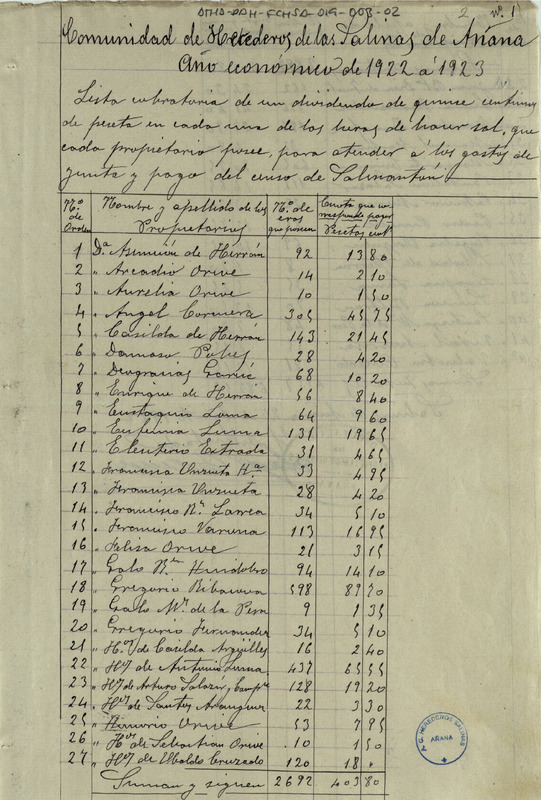 ATHA-DAH-FCHSA-016-003-02
2 nº 1
Comunidad de Herederos de las Salinas de Añana
Año económico de 1922 a 1923
Lista cobratoria de un dividendo de quinse centimos
de peseta en cada una de las heras de hacer sal, que
cada propietario posee, para atender a los gastos de
junta y pago del censo de Salinanton
Nº de Orden Nombre y apellido de los Propietarios Nº de eras que poseen Cuota que corresponde pagar Pesetas cent
1 Dª Asunción de Herrán 92 13 80
2 " Arcadio Orive 14 2 10
3 " Aurelia Orive 10 1 50
4 " Angel Cormera 305 45 75
5 " Casilda de Herrán 143 21 45
6 " Damaso 28 4 20
7 " Deogracias 68 10 20
8 " Enrique de Herrán 56 8 40
9 " Eustaquio Luna 64 9 60
10 " Eufemia Luna 131 19 65
11 " Eleuterio Extrada 31 4 65
12 " Francisca Unzueta Hª 33 4 95
13 " Francisca Unzueta 28 4 20
14 " Francisco Rz Larrea 34 5 10
15 " Francisco Varona 113 16 95
16 " Felisa Orive 21 3 15
17 " Galo 94 14 10
18 " Gregorio 598 89 70
19 " Galo Mz de la Pera 9 1 35
20 " Gregorio Fernandez 34 5 10
21 " Hos de Casilda Argüelles 16 2 40
22 " Hos de Antonio Luna 437 65 55
23 " Hos de Arturo Salazar y Compª 128 19 20
24 " Hos de Santos 22 3 30
25 " Orive 53 7 95
26 " Hos de Sebastian Orive 10 1 50
27 " Hos de Ubaldo Cruzado 120 18 "
Suman y siguen 2692 403 80
HEREDEROS SALINAS
AÑANA